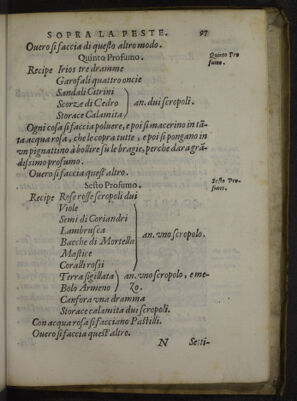 SOPRA LA PESTE. 97
Ouero si faccia di questo altro modo.
Quinto Profumo.
Quinto Profumo.
Recipe Irios tre dramme
Garofali quattro oncie
Sandali Citrini
Scorze di Cedro } an. dui scropoli.
Storace Calamita
Ogni cosa si faccia poluere, e poi si macerino in tãta
acqua rosa, che le copra tutte, e poi si pongano in
vn pignattino à bollire su le bragie, perche dara grãdissimo
profumo.
Ouero si faccia quest'altro.
Sesto Profumo.
Sesto Profumo.
Recipe Rose rosse scropoli dui
Viole
Semi di Coriandri
Lambrusca
Bacche di Mortella } an. vno scropolo.
Mastice
Coralli rossi
Terra sigillata } an. vno scropolo, e me-
Bolo Armeno } zo.
Canfora vna dramma
Storace calamita dui scropoli.
Con acqua rosa si facciano Pastilli.
Ouero si faccia quest'altro.
N Setti-